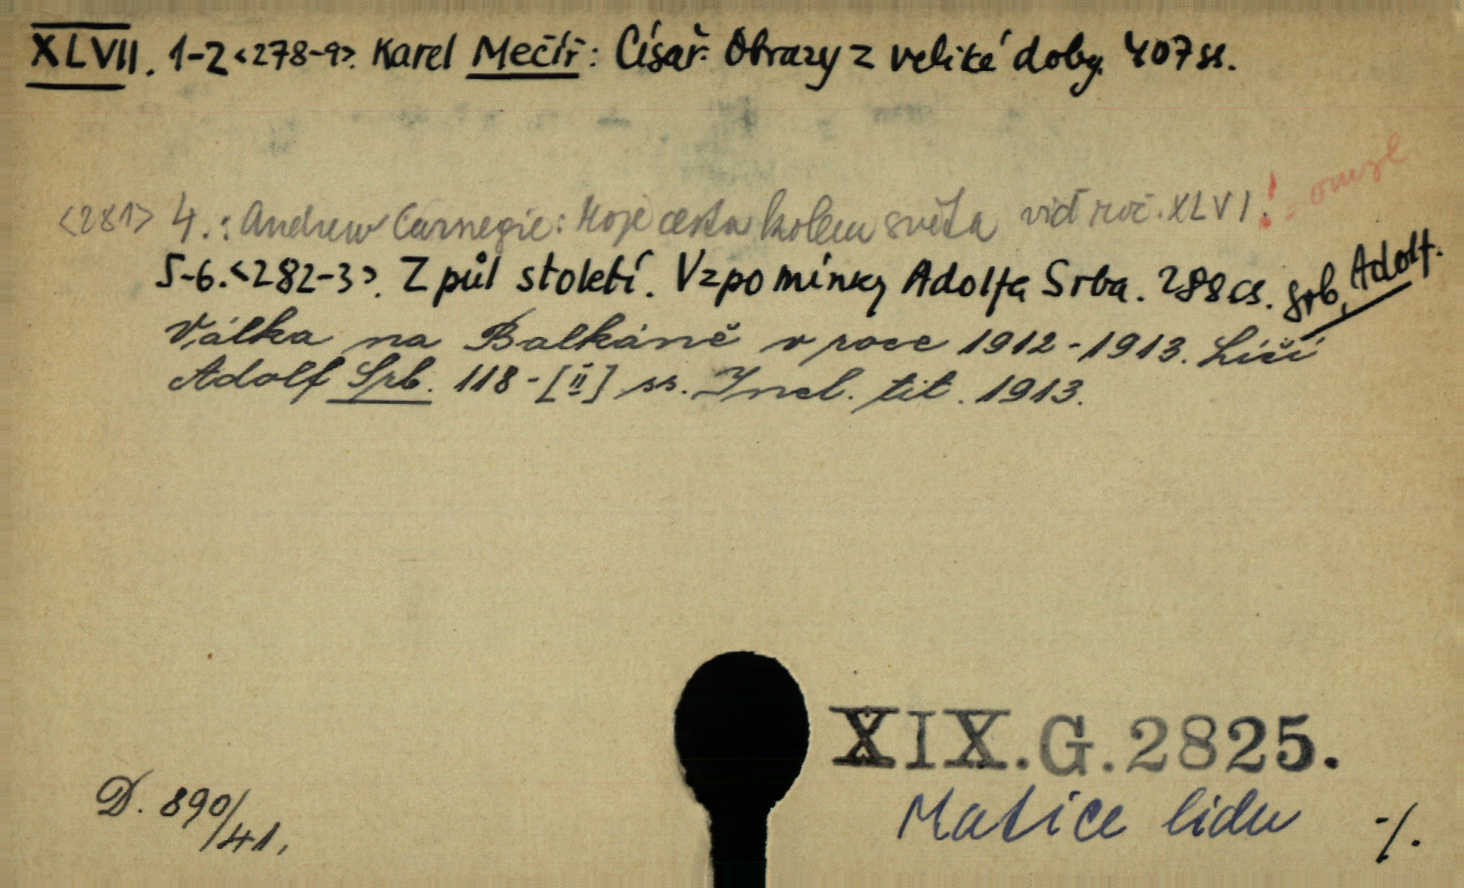 XLVII. 1-2 <278-9>. Karel Mečíř: Císař. Obrazy z veliké doby. 407 ss.
<281> 4.: Andrew Carnegie: Moje cesta kolem světa viď roč. XLVI! - omyl
5-6. <282-3>. Z půl století. Vzpomínky Adolfa Srba. 288 ss. Srb, Adolf.
Válka na Balkáně v roce 1912-1913. Líčí
Adolf Srb. 118-[II] ss. Incl. tit. 1913.
XIX.G.2825.
D. 890/41.
Matice lidu ·/.